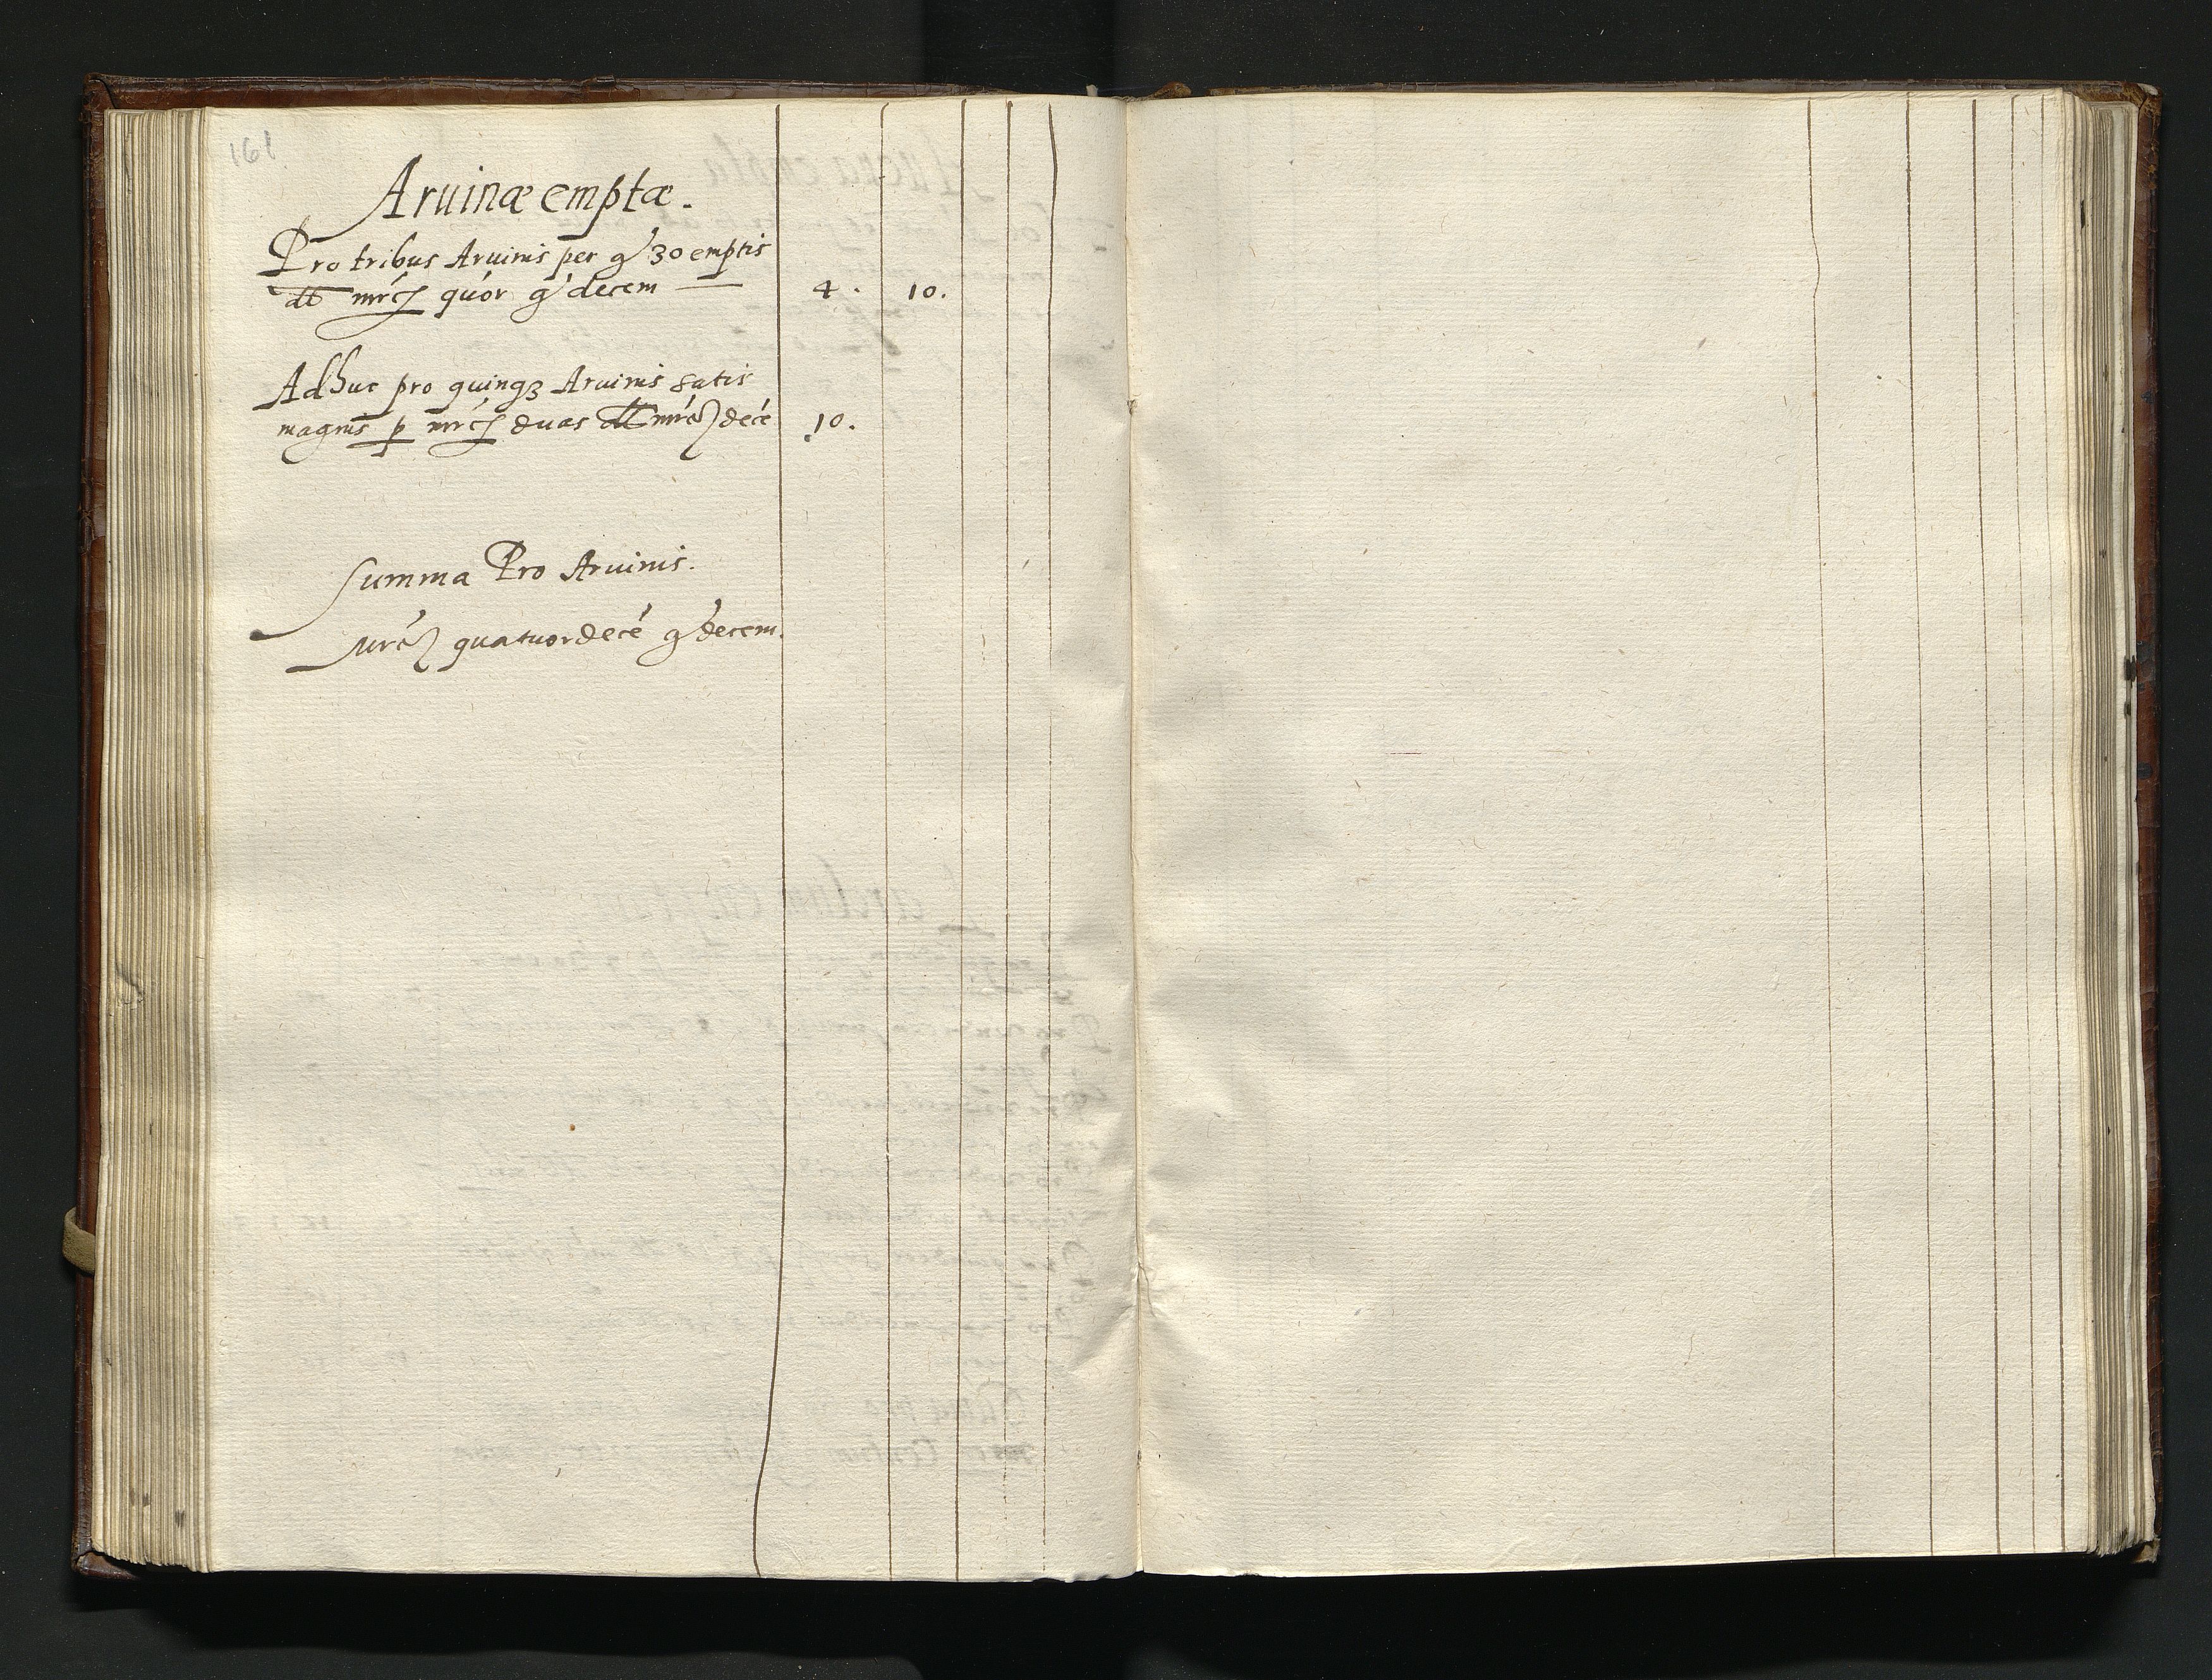 161
Aruinæ emptæ.
Pro tribus Aruinis per g 30 emptis
dt mrcs quór g decem — 4. 10.
AdHuc pro quinqꝫ Aruinis satis
magnis p mrcs duas dt mrcs decé 10.
Summa Pro Aruinis.
Mrcs quatuordecé g decem.